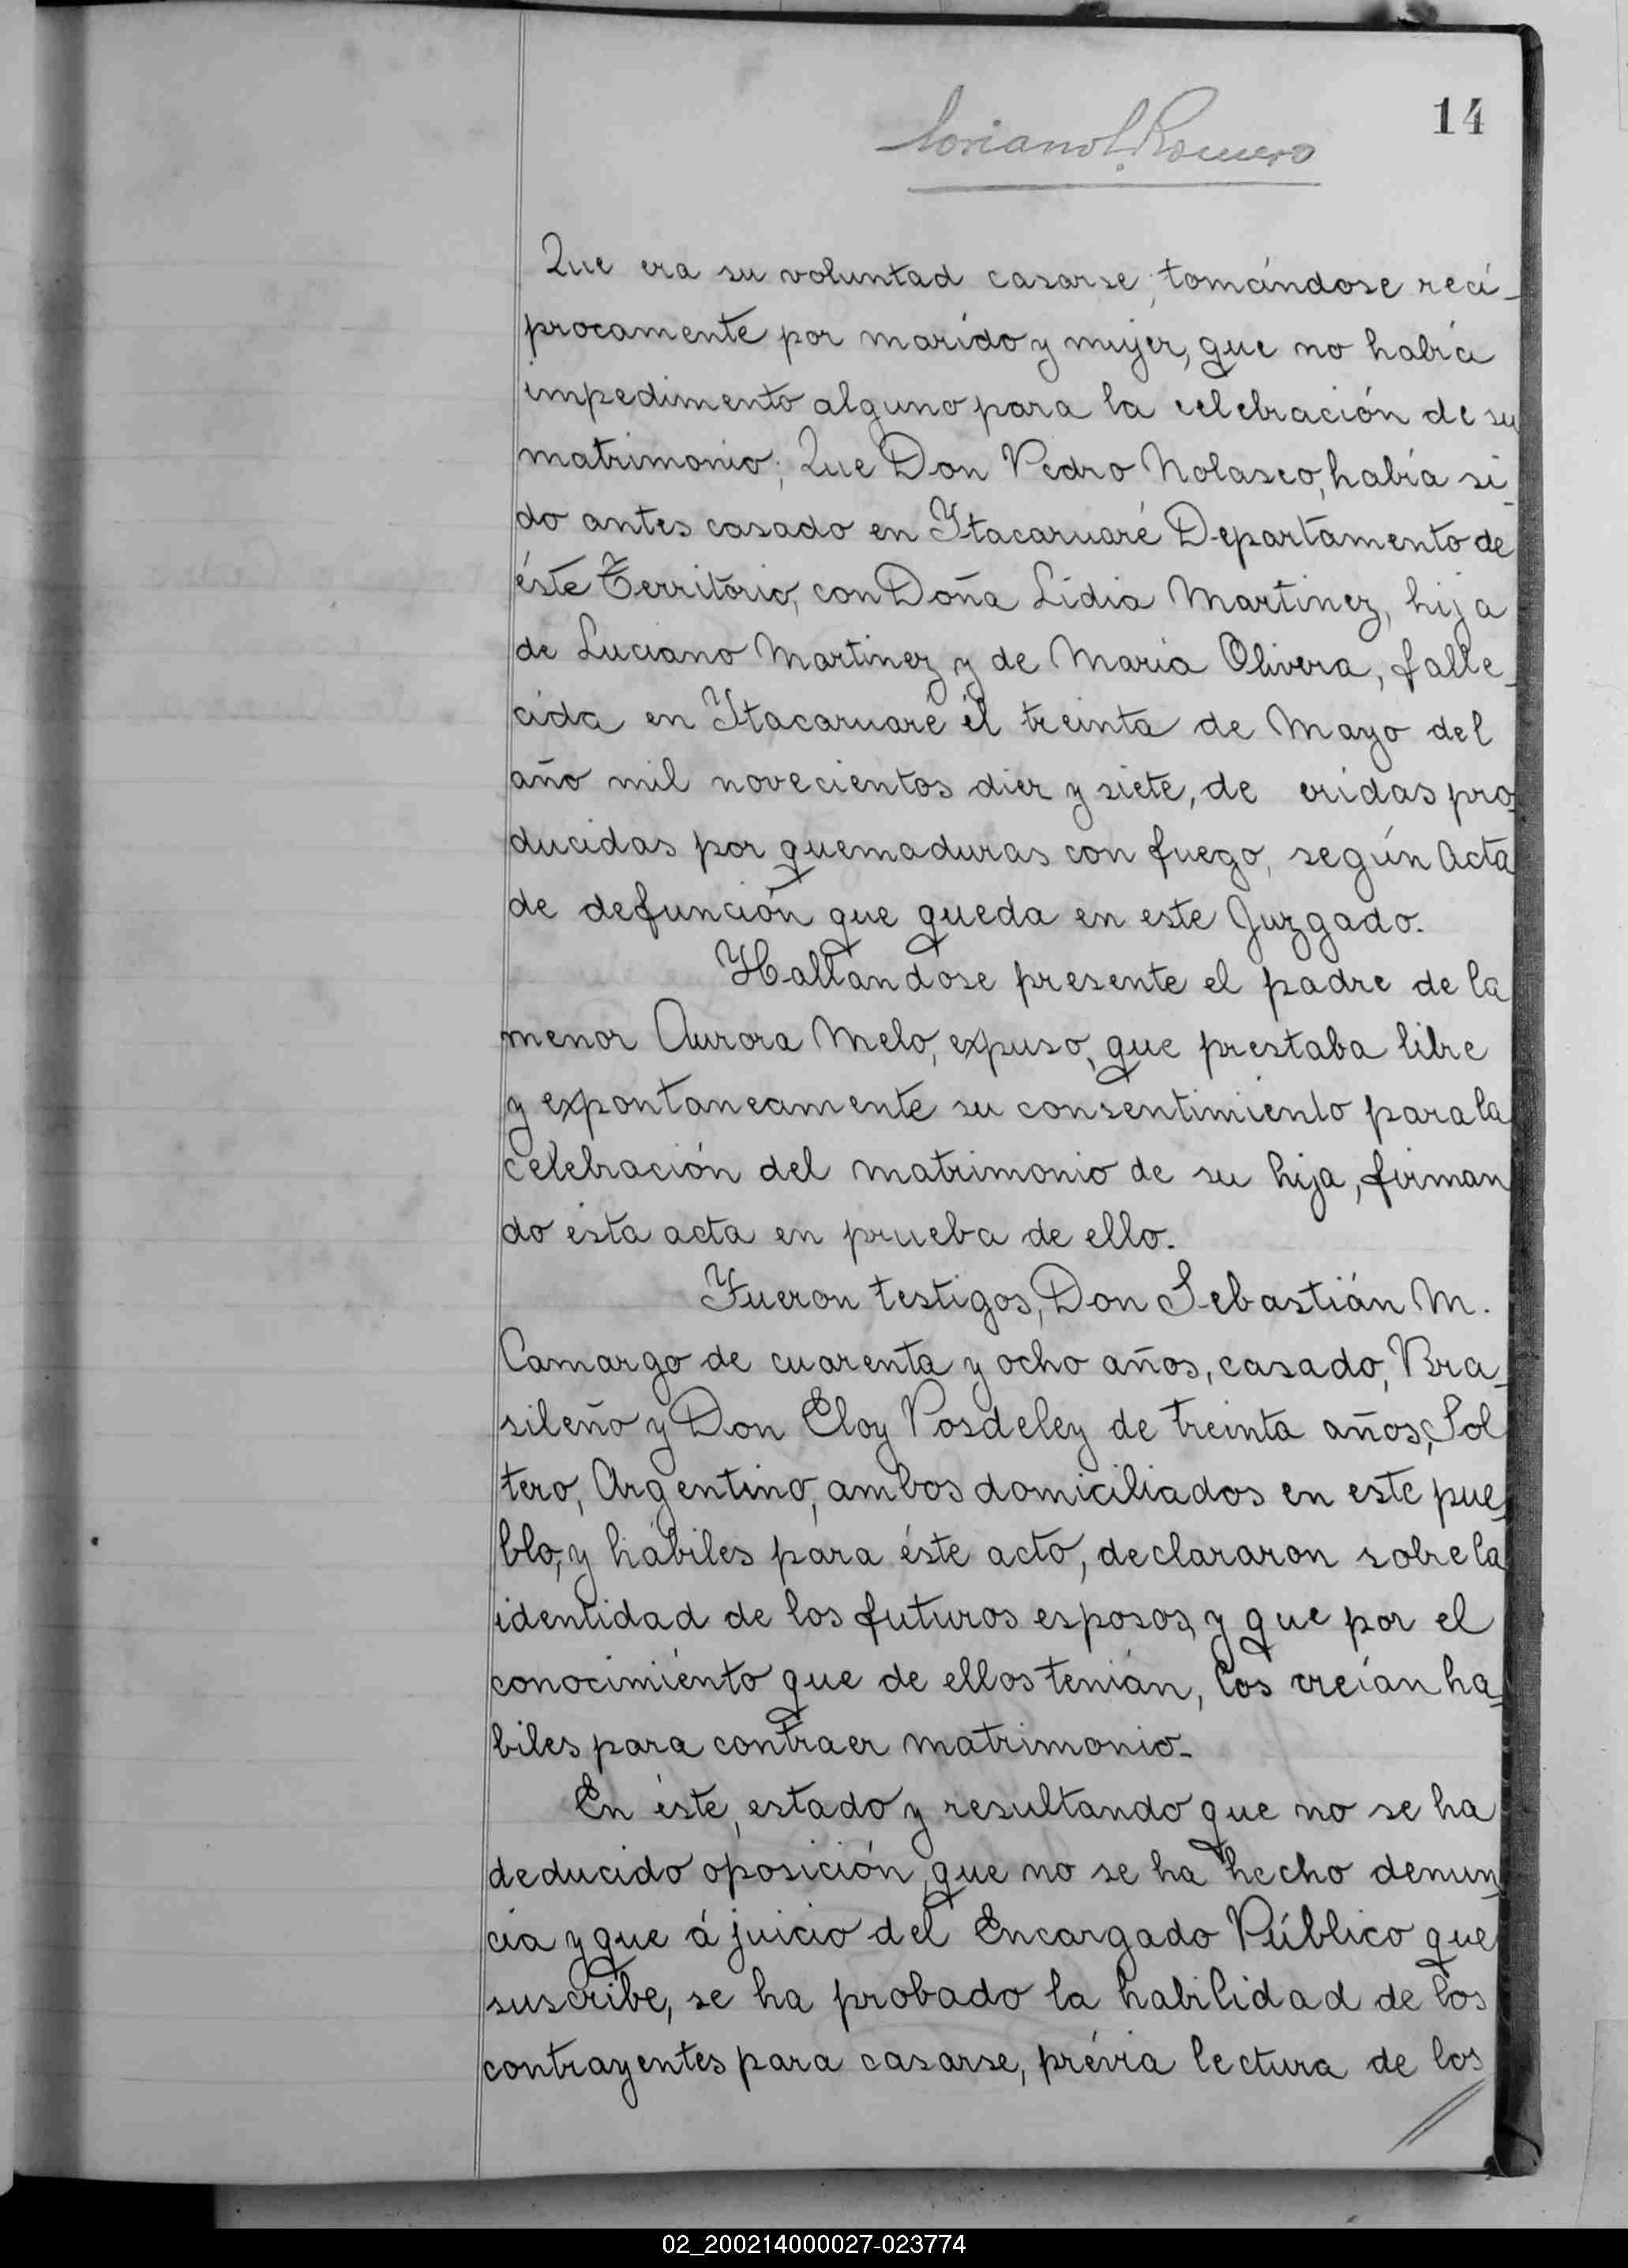 14
Soriano L. Romero
Que era su voluntad casarse; tomándose recí-
procamente por marido y mujer, que no había
impedimento alguno para la celebración de su
matrimonio; Que Don Pedro Nolasco, había si-
do antes casado en Itacaruaré Departamento de
éste Territorio, con Doña Lidia Martinez, hija
de Luciano Martinez y de María Olivera, falle-
cida en Itacaruaré él treinta de Mayo del
año mil novecientos diez y siete, de eridas pro-
ducidas por quemaduras con fuego, según Acta
de defunción que queda en este Juzgado.
Hallandose presente el padre de la
menor Aurora Melo, expuso, que prestaba libre
y expontaneamente su consentimiento para la
celebración del matrimonio de su hija, firman
do ésta acta en prueba de ello.
Fueron testigos, Don Sebastián M.
Camargo de cuarenta y ocho años, casado, Bra-
sileño y Don Eloy Posdeley de treinta años, Sol
tero, Argentino, ambos domiciliados en este pue-
blo, y hábiles para éste acto, declararon sobre la
identidad de los futuros esposos, y que por el
conocimiénto que de ellos tenián, los creían ha-
biles para contraer matrimonio.
En éste, estado y resultando que no se ha
deducido oposición, que no se ha hecho denun-
cia y que á juicio del Encargado Público que
suscribe, se ha probado la habilidad de los
contrayentes para casarse, prévia lectura de los
02_200214000027-023774